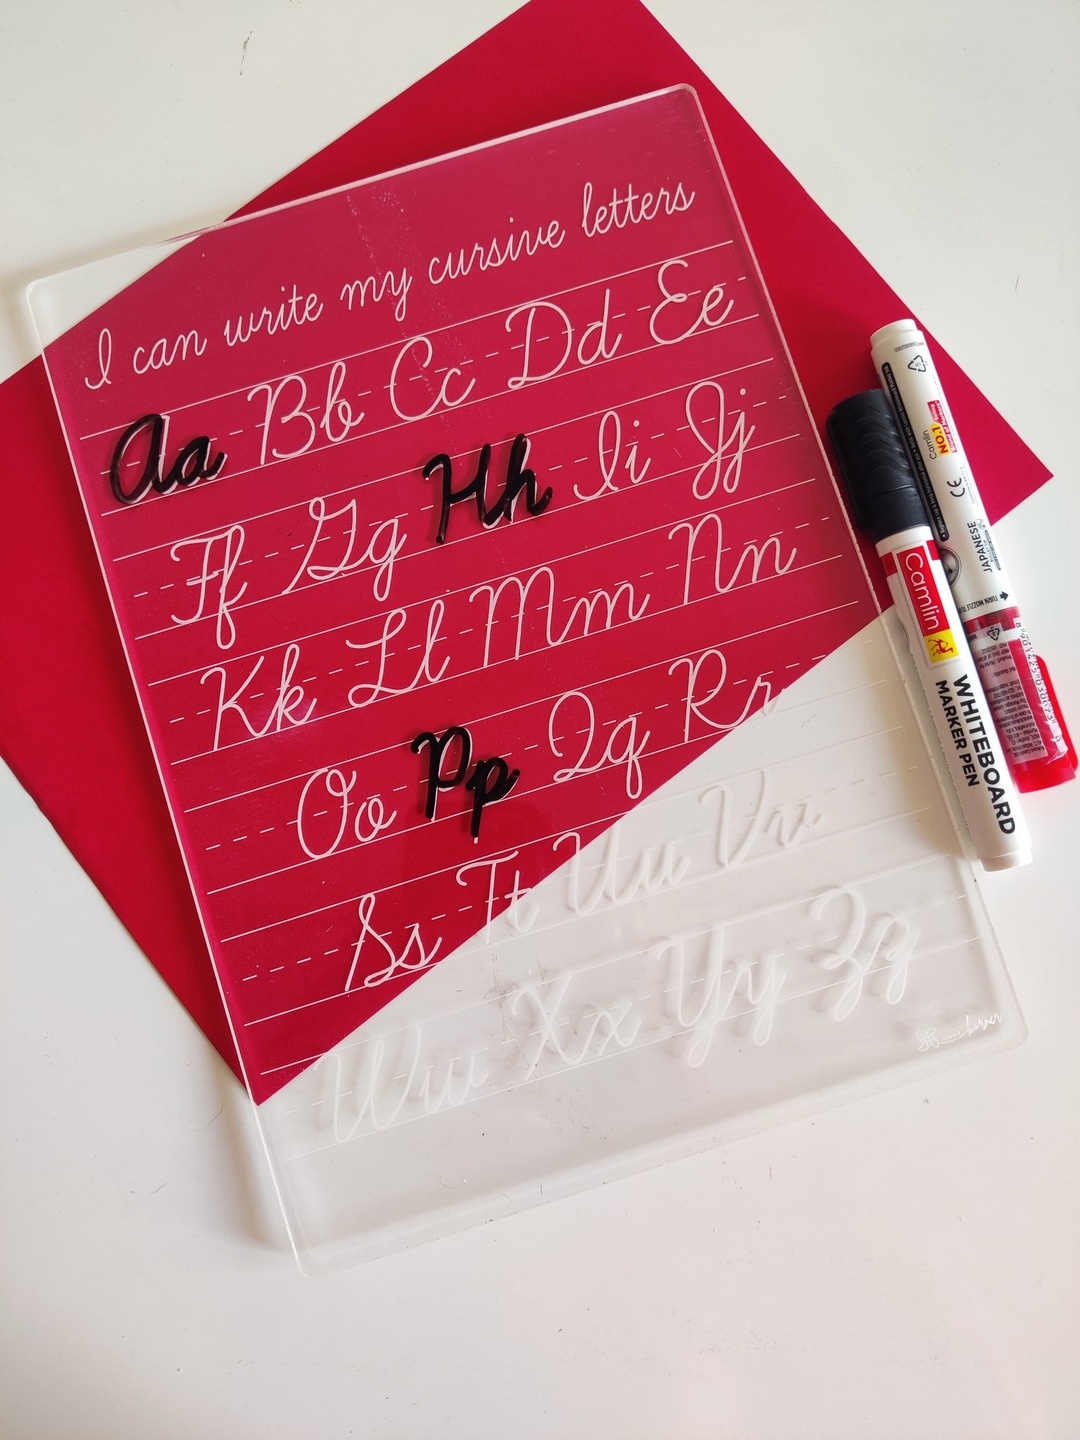 I can write my cursive letters
Aa Bb Cc Dd Ee
Ff Gg Hh Ii Jj
Kk Ll Mm Nn
Oo Pp Qq Rr
Ss Tt Uu Vv
Ww Xx Yy Zz
Camlin
WHITEBOARD
MARKER PEN
Camlin
NO.1
CE
JAPANESE
TURN NOZZLE TO